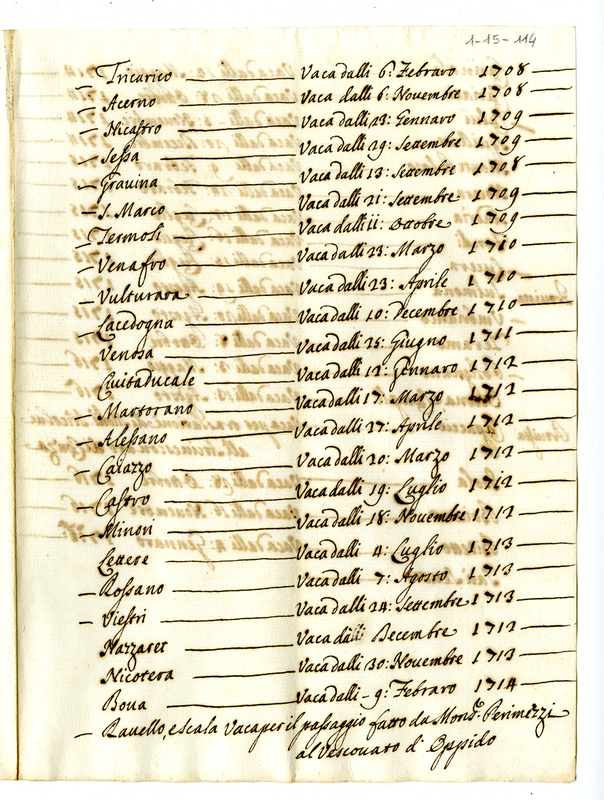 1-15-114
Tricarico Vaca dalli 6: Febraro 1708
Acerno Vaca dalli 6: Novembre 1708
Nicastro Vaca dalli 23: Gennaro 1709
Sessa Vaca dalli 29: Settembre 1709
Gravina Vaca dalli 13: Settembre 1708
S. Marco Vaca dalli 21: Settembre 1709
Termoli Vaca dalli 11: Ottobre 1709
Venafro Vaca dalli 23: Marzo 1710
Vulturara Vaca dalli 23: Aprile 1710
Lacedogna Vaca dalli 10: Decembre 1710
Venosa Vaca dalli 25: Giugno 1711
Civitaducale Vaca dalli 12: Gennaro 1712
Martorano Vaca dalli 17: Marzo 1712
Alessano Vaca dalli 27: Aprile 1712
Caiazzo Vaca dalli 20: Marzo 1712
Castro Vaca dalli 19: Luglio 1712
Minori Vaca dalli 18: Novembre 1712
Lettere Vaca dalli 4: Luglio 1713
Rossano Vaca dalli 7: Agosto 1713
Viestri Vaca dalli 24: Settembre 1713
Nazzaret Vaca dalli Decembre 1712
Nicotera Vaca dalli 30: Novembre 1713
Boua Vaca dalli 9: Febraro 1714
Ravello, e scala Vaca per il passaggio fatto da Monsr. Perimezzi
al Vescouato di Oppido